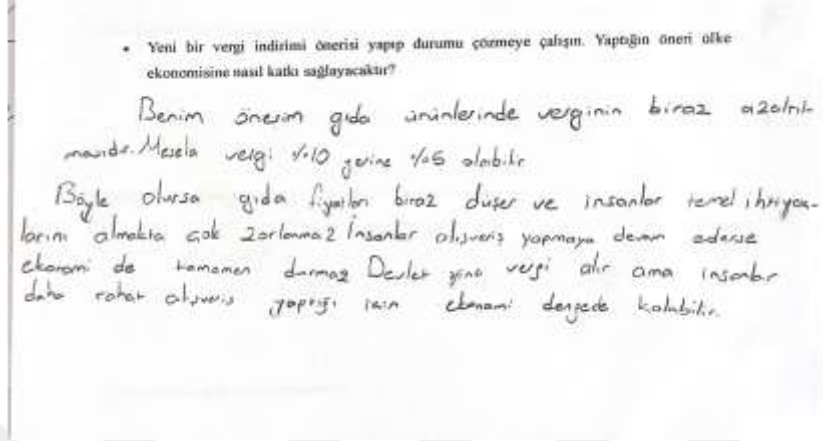 • Yeni bir vergi indirimi önerisi yapıp durumu çözmeye çalışın. Yaptığın öneri ülke
ekonomisine nasıl katkı sağlayacaktır?
Benim önerim gıda ürünlerinde verginin biraz azaltıl-
masıdır. Mesela vergi %10 yerine %5 olabilir
Böyle olursa gıda fiyatları biraz düşer ve insanlar temel ihtiyaç-
larını almakta çok zorlanmaz İnsanlar alışveriş yapmaya devam ederse
ekonomi de tamamen durmaz Devlet yine vergi alır ama insanlar
daha rahat alışveriş yaptığı için ekonomi dengede kalabilir.